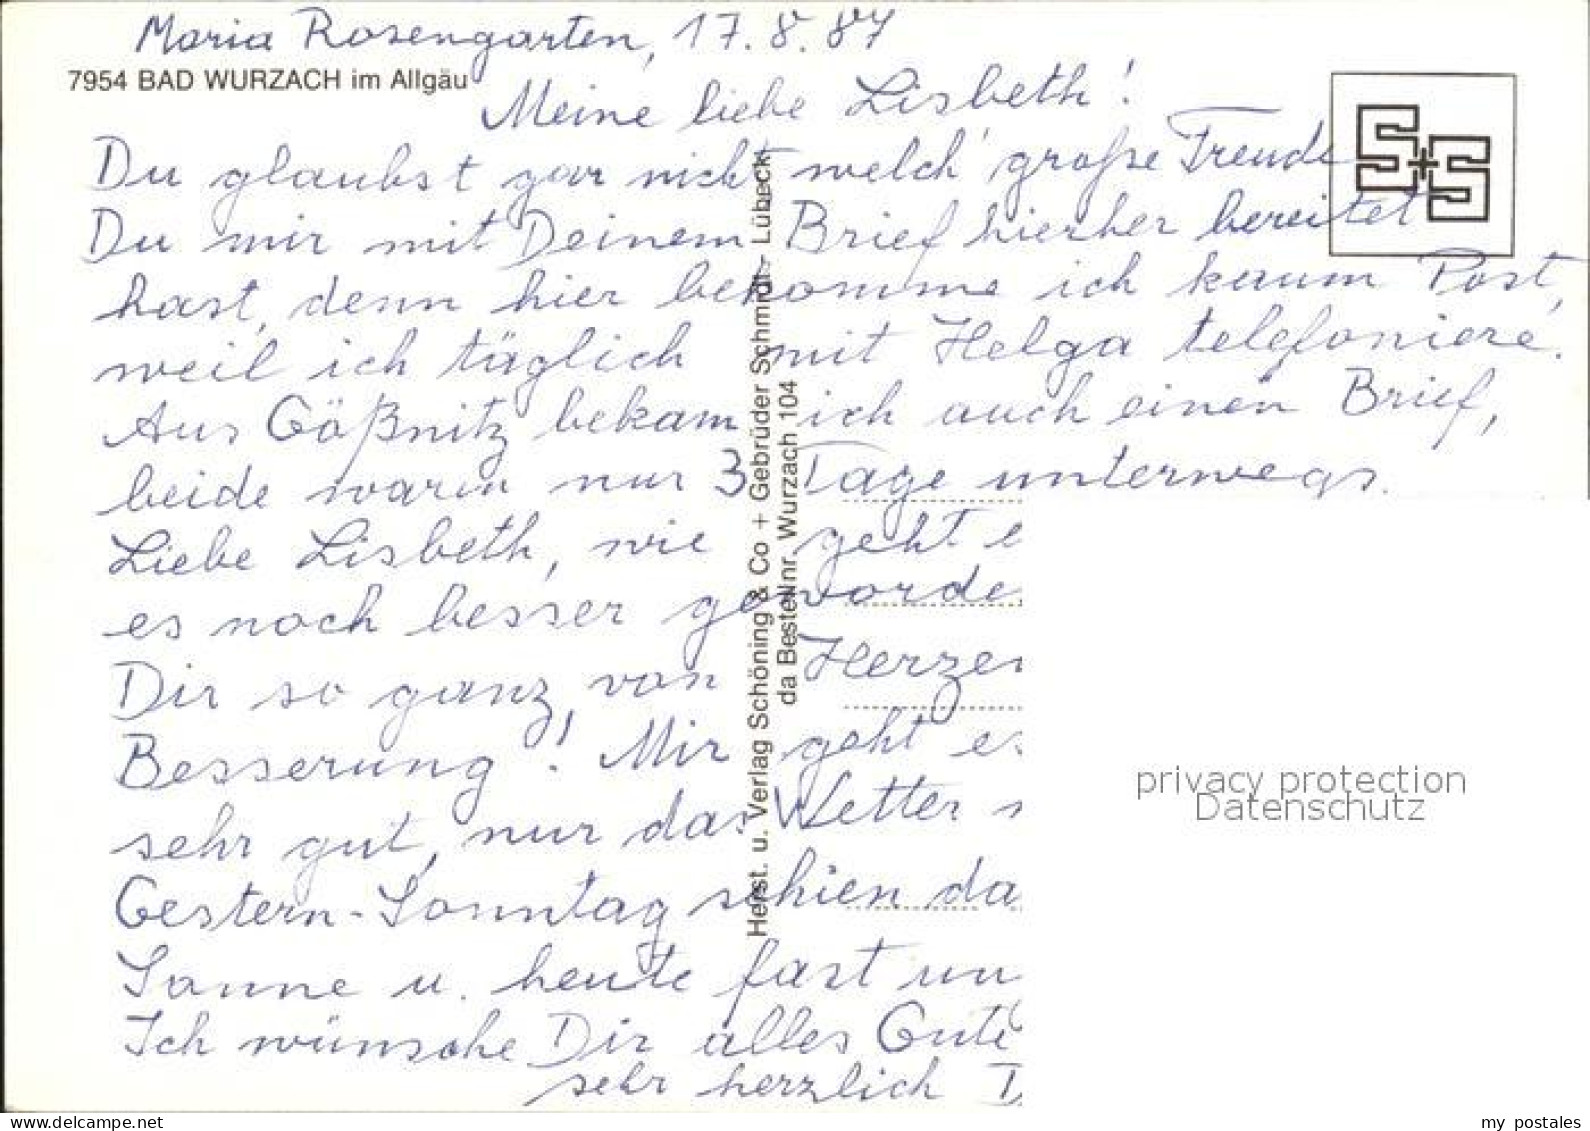 Maria Rosengarten, 17.8.87
7954 BAD WURZACH im Allgäu
Meine liebe Lisbeth!
Du glaubst gar nicht welch' große Freude
Du mir mit Deinem Brief hierher bereitet
hast, denn hier bekomme ich kaum Post,
weil ich täglich mit Helga telefoniere.
Aus Gößnitz bekam ich auch einen Brief,
beide waren nur 3 Tage unterwegs.
Liebe Lisbeth, wie geht e
es noch besser geworde
Dir so ganz von Herzen
Besserung! Mir geht es
sehr gut, nur das Wetter
Gestern-Sonntag schien da
Sonne u. heute fast un
Ich wünsche Dir alles Gute
sehr herzlich
S+S
Herst. u. Verlag Schöning & Co + Gebrüder Schmidt Lübeck
da Bestellnr. Wurzach 104
privacy protection
Datenschutz
www.delcampe.net
my_postales